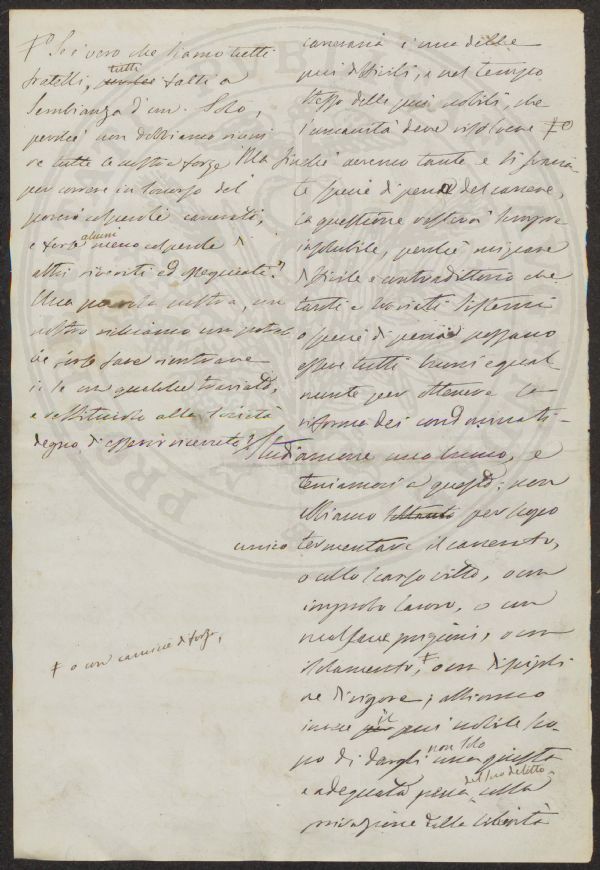 ≠° Se è vero che siamo tutti
fratelli, tutti fatti a
sembianza d'un Solo,
perchè non dobbiamo riuni
re tutte le nostre forze
per correre in soccorso dei
poveri colpevoli carcerati,
e forse alcuni meno colpevoli di
altri riveriti ed ossequiati?
Una parola nostra, un
nostro richiamo non potreb
be forse fare rientrare
in se un qualche traviato,
e restituirlo alla Società
degno di esservi ricevuto?
≠ o con camicie di forza,
carceraria è una delle
più difficili, e nel tempo
stesso delle più nobili, che
l'umanità deve risolvere ≠°
Ma finchè avremo tante e sì svaria
te specie di pena del carcere,
la questione resterà sempre
insolubile, perchè mi pare
difficile e contradittorio che
tanti e svariati sistemi
o specie di pena possano
essere tutti buoni egual
mente per ottenere la
riforma dei condannati -
Studiamone uno buono, e
teniamoci a questo; non
abbiamo soltanto per scopo
unico tormentare il carcerato,
o collo scarso vitto, o con
improbo lavoro, o con
malsane prigioni, o con
isolamento, ≠ o con discipli
ne di rigore; abbiamo
invece il più nobile sco
po di dargli non solo una giusta
e adeguata pena del suo delitto colla
privazione della libertà